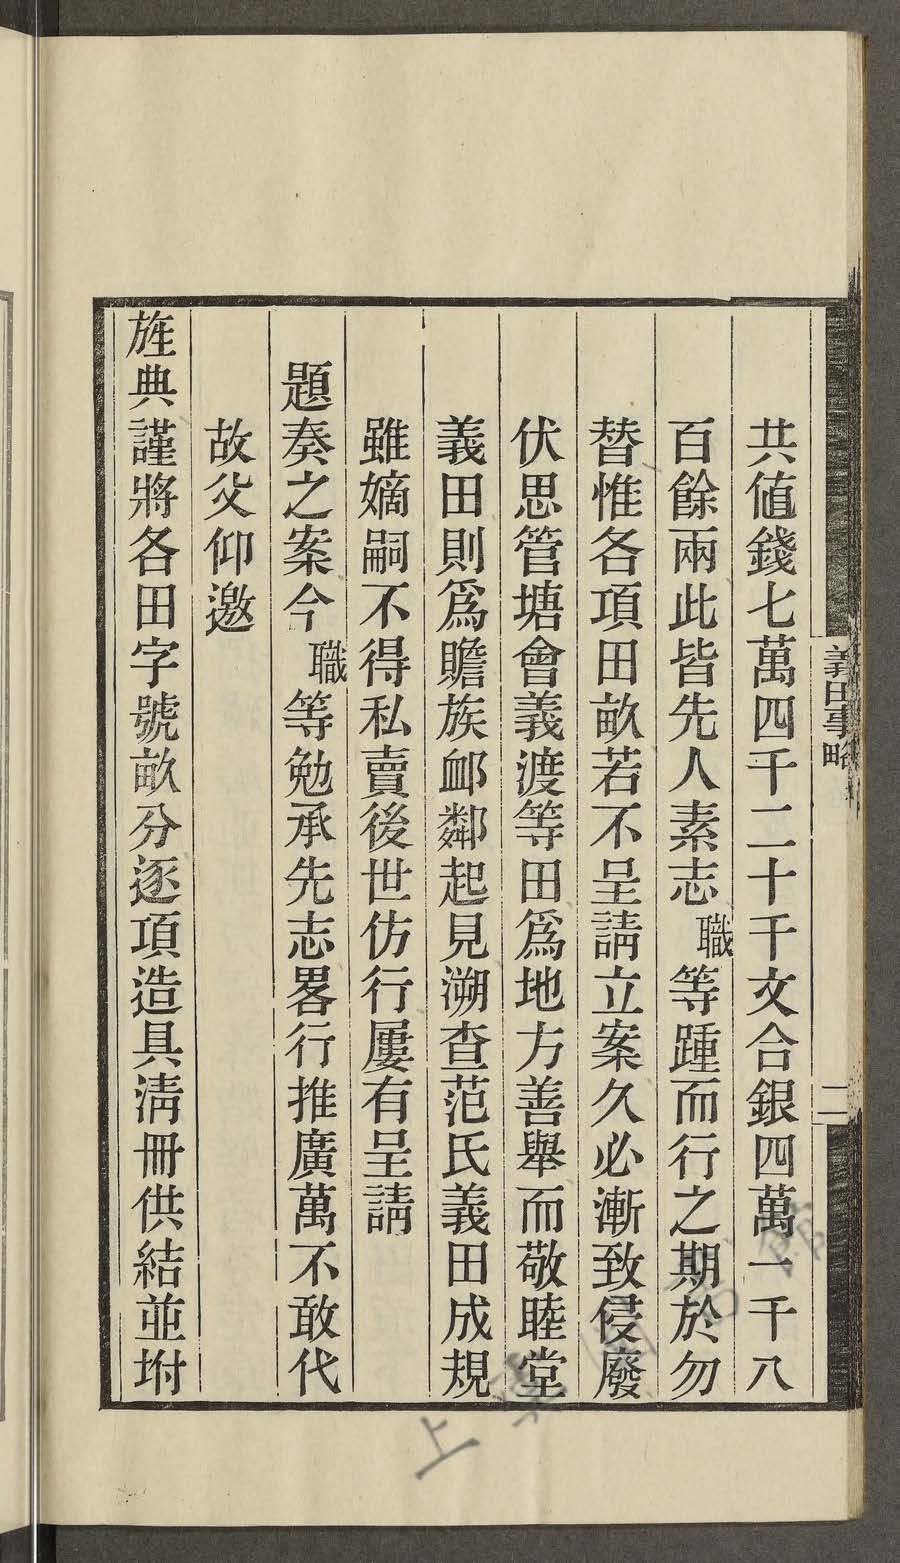 共値錢七萬四千二十千文合銀四萬一千八
百餘兩此皆先人素志職等踵而行之期於勿
替惟各項田畝若不呈請立案久必漸致侵廢
伏思管塘會義渡等田爲地方善舉而敬睦堂
義田則爲贍族䘏鄰起見溯查范氏義田成規
雖嫡嗣不得私賣後世仿行屢有呈請
題奏之案今職等勉承先志畧行推廣萬不敢代
故父仰邀
旌典謹將各田字號畝分逐項造具淸冊供結並坿
義田事略
二
上海圖書館